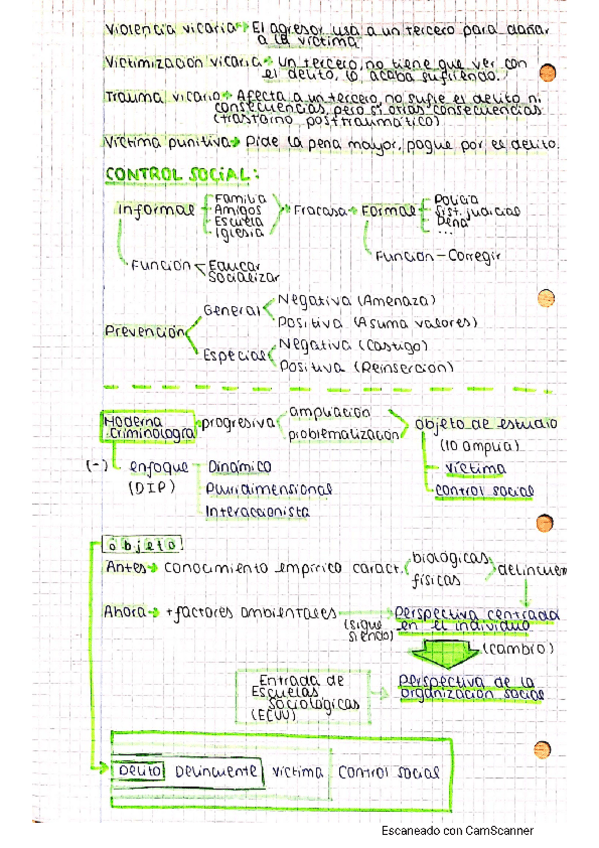 Violencia vicaria → El agresor usa a un tercero para dañar
a la víctima
Victimización vicaria → un tercero, no tiene que ver con
el delito, lo acaba sufriendo.
Trauma vicario → Afecta a un tercero, no sufre el delito ni
consecuencias, pero sí otras consecuencias
(trastorno posttraumático)
Víctima punitiva → Pide la pena mayor, pague por el delito.
CONTROL SOCIAL:
Informal
Familia
Amigos
Escuela
Iglesia
→ Fracasa → Formal
Policía
Sist. judicial
Pena
...
Función
Educar
Socializar
Función - Corregir
Prevención
General
Negativa (Amenaza)
Positiva (Asuma valores)
Especial
Negativa (Castigo)
Positiva (Reinserción)
Moderna
criminología
progresiva
ampliación
problematización
objeto de estudio
(lo amplía)
víctima
control social
(-) enfoque
(DIP)
Dinámico
Pluridimensional
Interaccionista
objeto
Antes → conocimiento empírico caract.
biológicas
físicas
delincuen
Ahora → + factores ambientales
(sigue
siendo)
Perspectiva centrada
en el individuo
(cambio)
Entrada de
Escuelas
Sociológicas
(EEUU)
Perspectiva de la
organización social
Delito Delincuente víctima control social
Escaneado con CamScanner